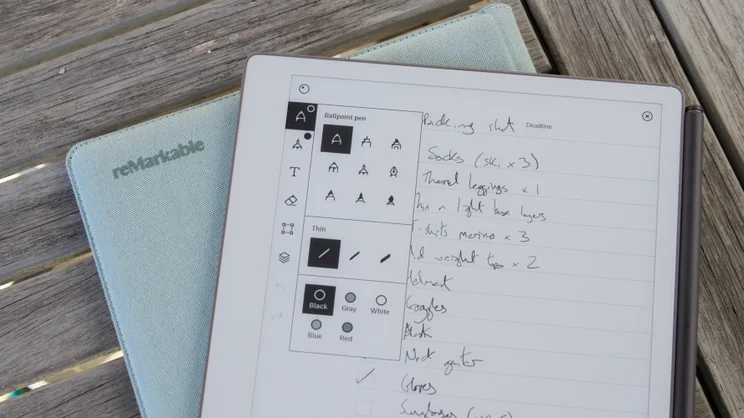 reMarkable
Ballpoint pen
Thin
Black
Gray
White
Blue
Red
T
Packing Deadline
Socks (ski x 3)
Thermal leggings x 1
light base layers
merino x 3
weight x 2
Helmet
Goggles
Neck gaiter
Gloves
Sunglasses